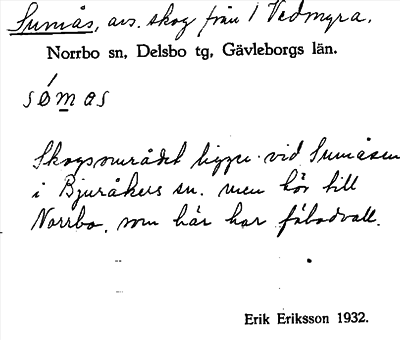 Sumås, avs. skog från 1 Vedmyra.
Norrbo sn, Delsbo tg, Gävleborgs län.
sómas
Skogsområdet ligger vid Sumåsen
i Bjuråkers sn. men hör till
Norrbo, som här har fäbodvall.
Erik Eriksson 1932.